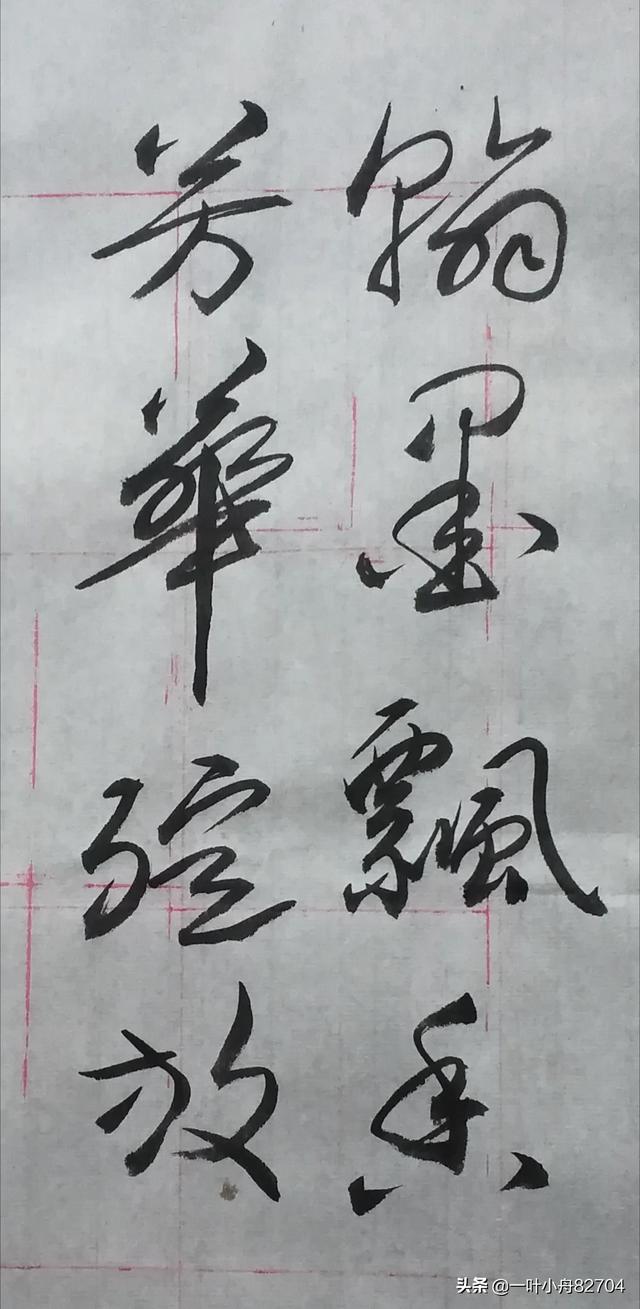 翰墨飄香
芳華綻放
头条 @一叶小舟82704